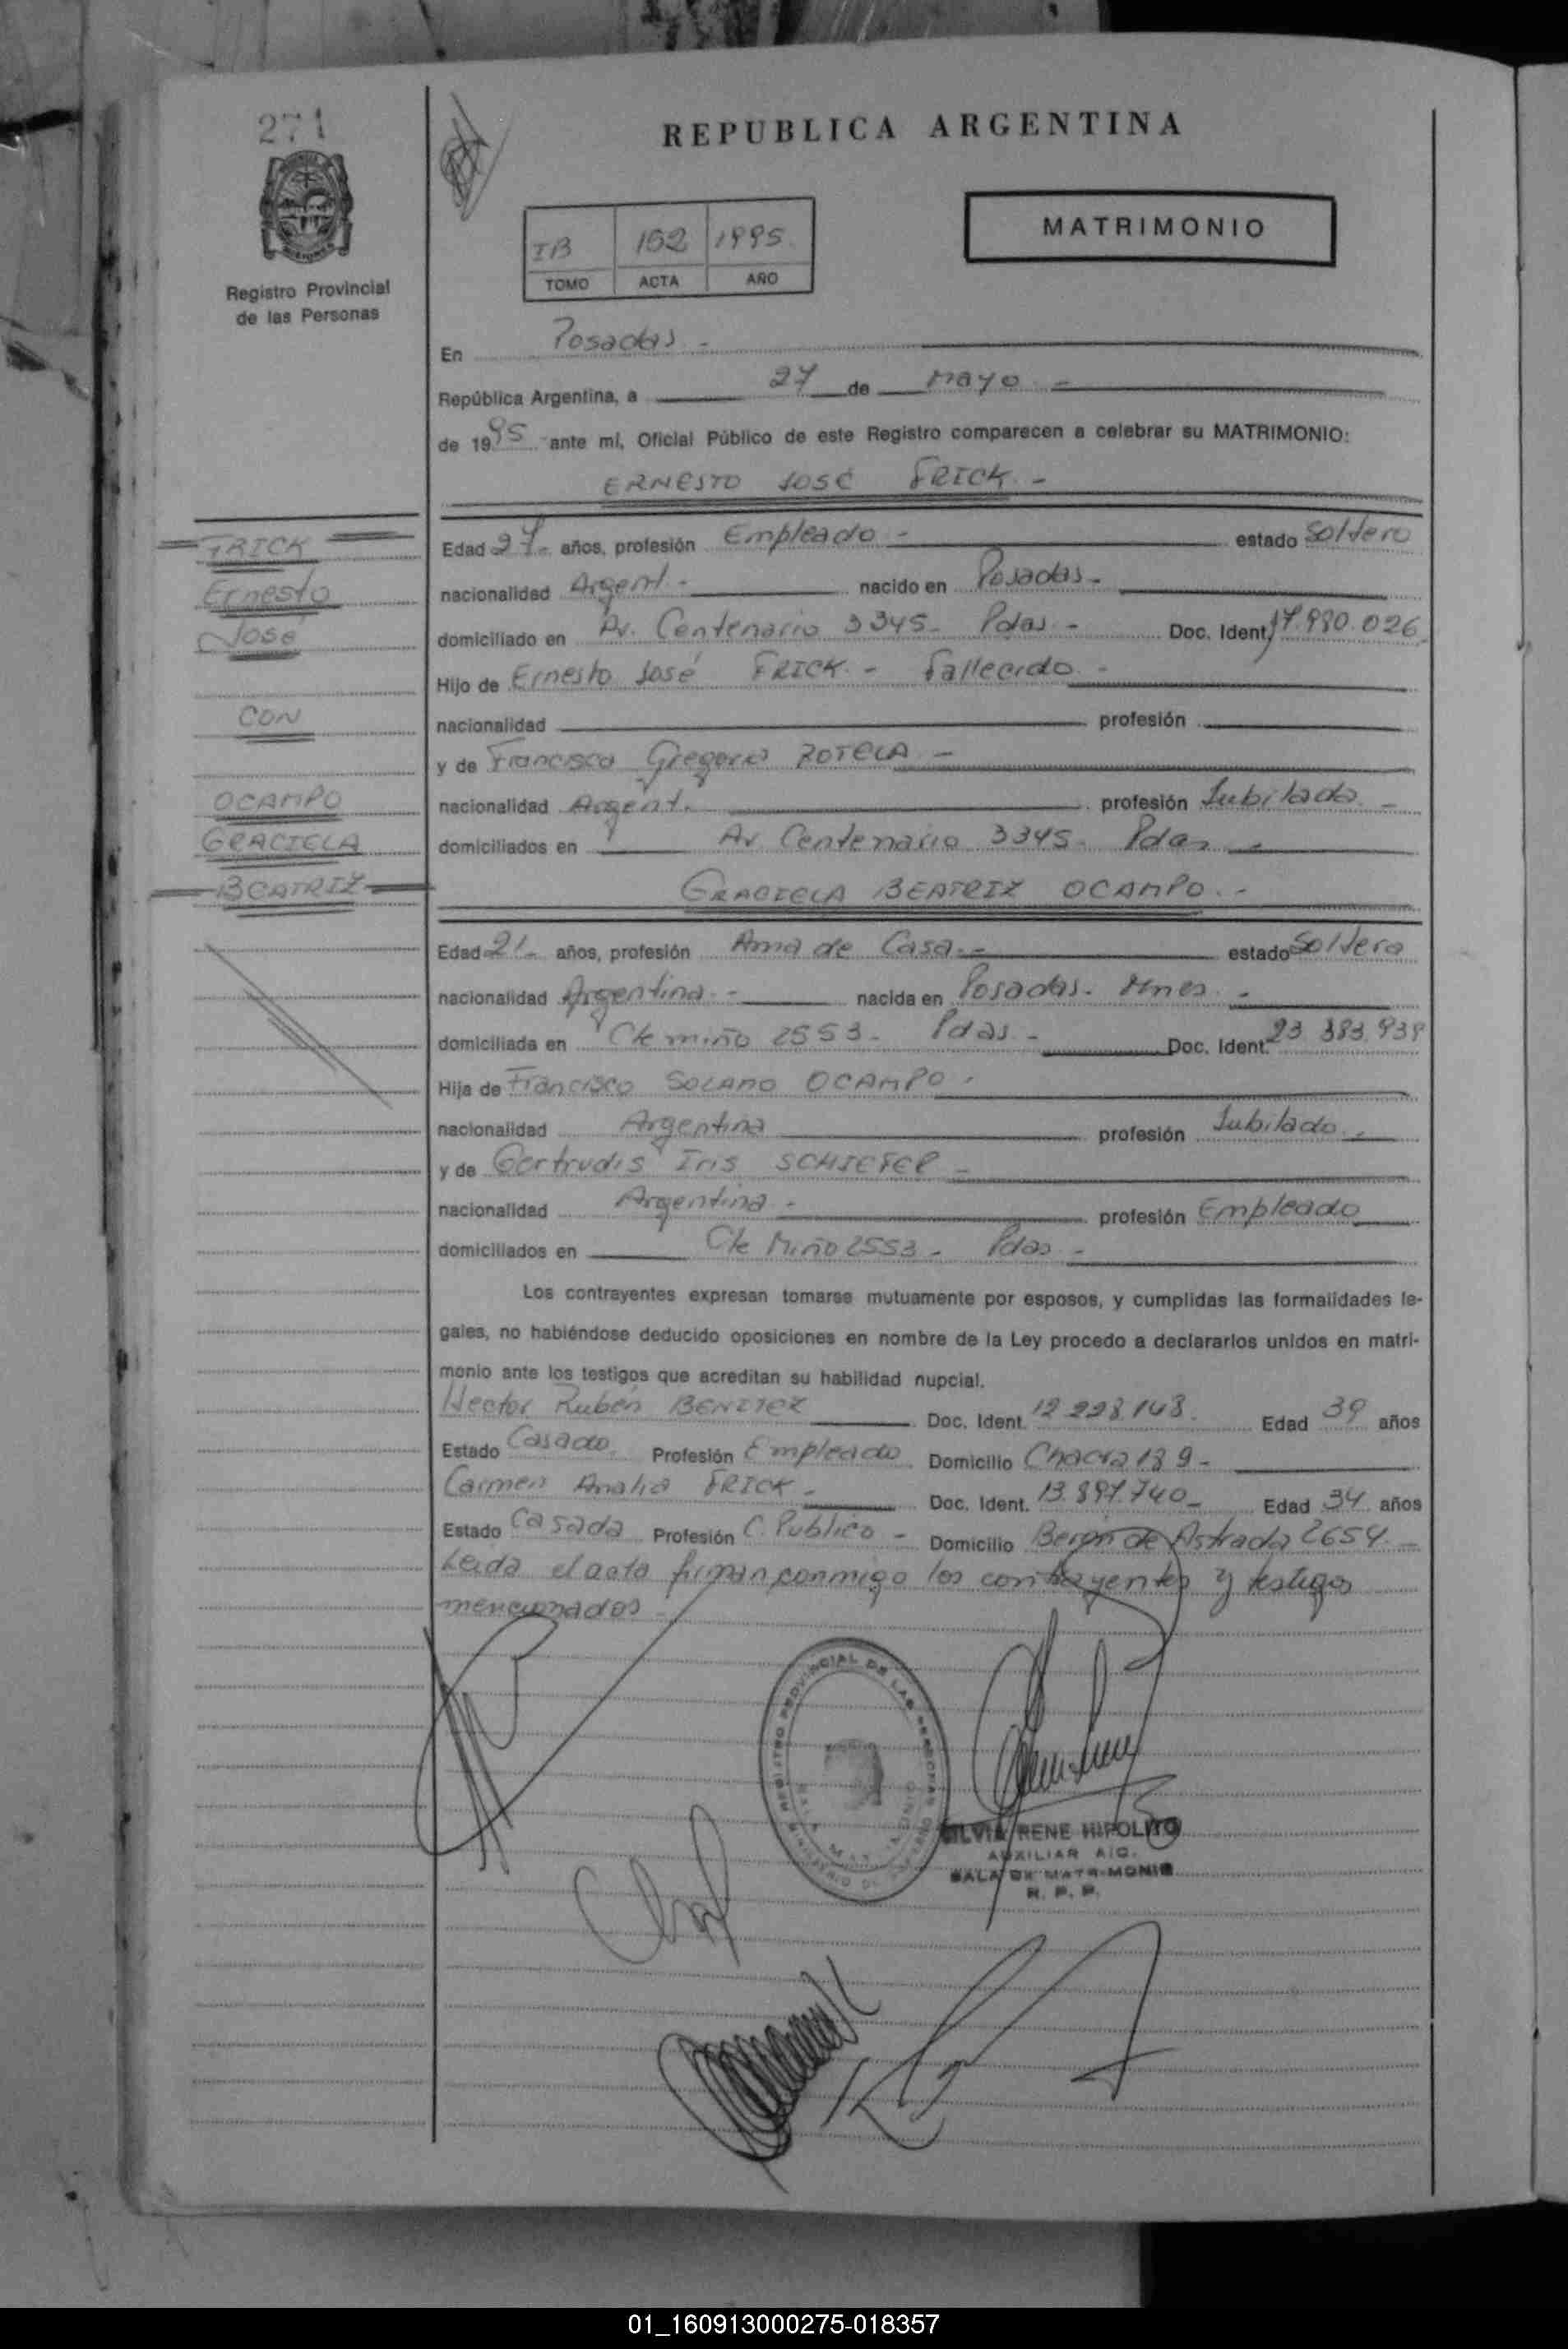 271
REPUBLICA ARGENTINA
MATRIMONIO
IB 152 1995
TOMO ACTA AÑO
Registro Provincial
de las Personas
En Posadas -
República Argentina, a 27 de Mayo -
de 1995 ante mí, Oficial Público de este Registro comparecen a celebrar su MATRIMONIO:
ERNESTO JOSÉ FRICK -
FRICK
Ernesto
José
CON
OCAMPO
GRACIELA
BEATRIZ
Edad 27- años, profesión Empleado - estado Soltero
nacionalidad Argent. - nacido en Posadas -
domiciliado en Av. Centenario 3345- Pdas - Doc. Ident. 17.980.026
Hijo de Ernesto José FRICK - Fallecido -
nacionalidad profesión
y de Francisca Gregoria ZOTELA -
nacionalidad Argent. profesión Jubilada -
domiciliados en Av Centenario 3345- Pdas -
GRACIELA BEATRIZ OCAMPO. -
Edad 21- años, profesión Ama de Casa. - estado Soltera
nacionalidad Argentina - nacida en Posadas. Mnes -
domiciliada en Cte miño 2553- Pdas - Doc. Ident. 23.383.939
Hija de Francisco SOLANO OCAMPO.
nacionalidad Argentina profesión Jubilado -
y de Gertrudis Iris SCHIEFER -
nacionalidad Argentina - profesión Empleado
domiciliados en Cte Miño 2553- Pdas -
Los contrayentes expresan tomarse mutuamente por esposos, y cumplidas las formalidades le-
gales, no habiéndose deducido oposiciones en nombre de la Ley procedo a declararlos unidos en matri-
monio ante los testigos que acreditan su habilidad nupcial.
Hector Rubén BENITEZ Doc. Ident. 12.228.148. Edad 39 años
Estado Casado. Profesión Empleado Domicilio Chacra 189-
Carmen Analia FRICK - Doc. Ident. 13.897.740- Edad 34 años
Estado Casada Profesión C. Publico - Domicilio Beron de Astrada 2654. -
Leida el acta firman conmigo los contrayentes y testigos
mencionados -
REGISTRO PROVINCIAL DE LAS PERSONAS
SILVIA RENE HIPOLITO
AUXILIAR A/C.
SALA DE MATRIMONIO
R. P. P.
01_160913000275-018357